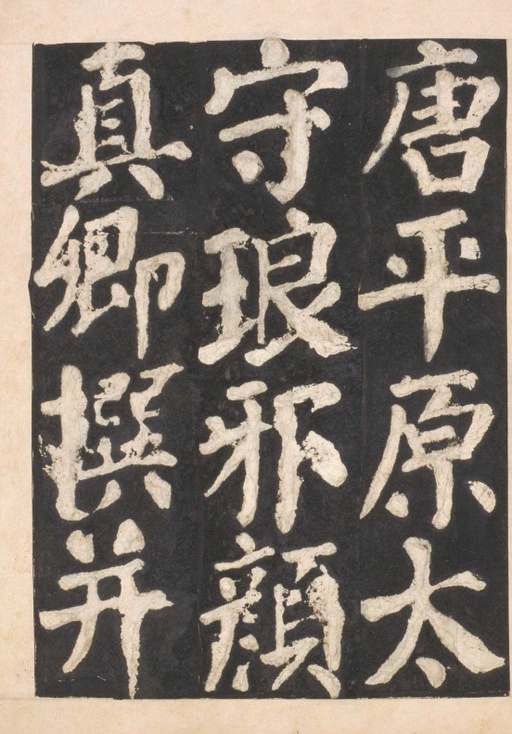 唐平原太
守琅邪顔
真卿撰并